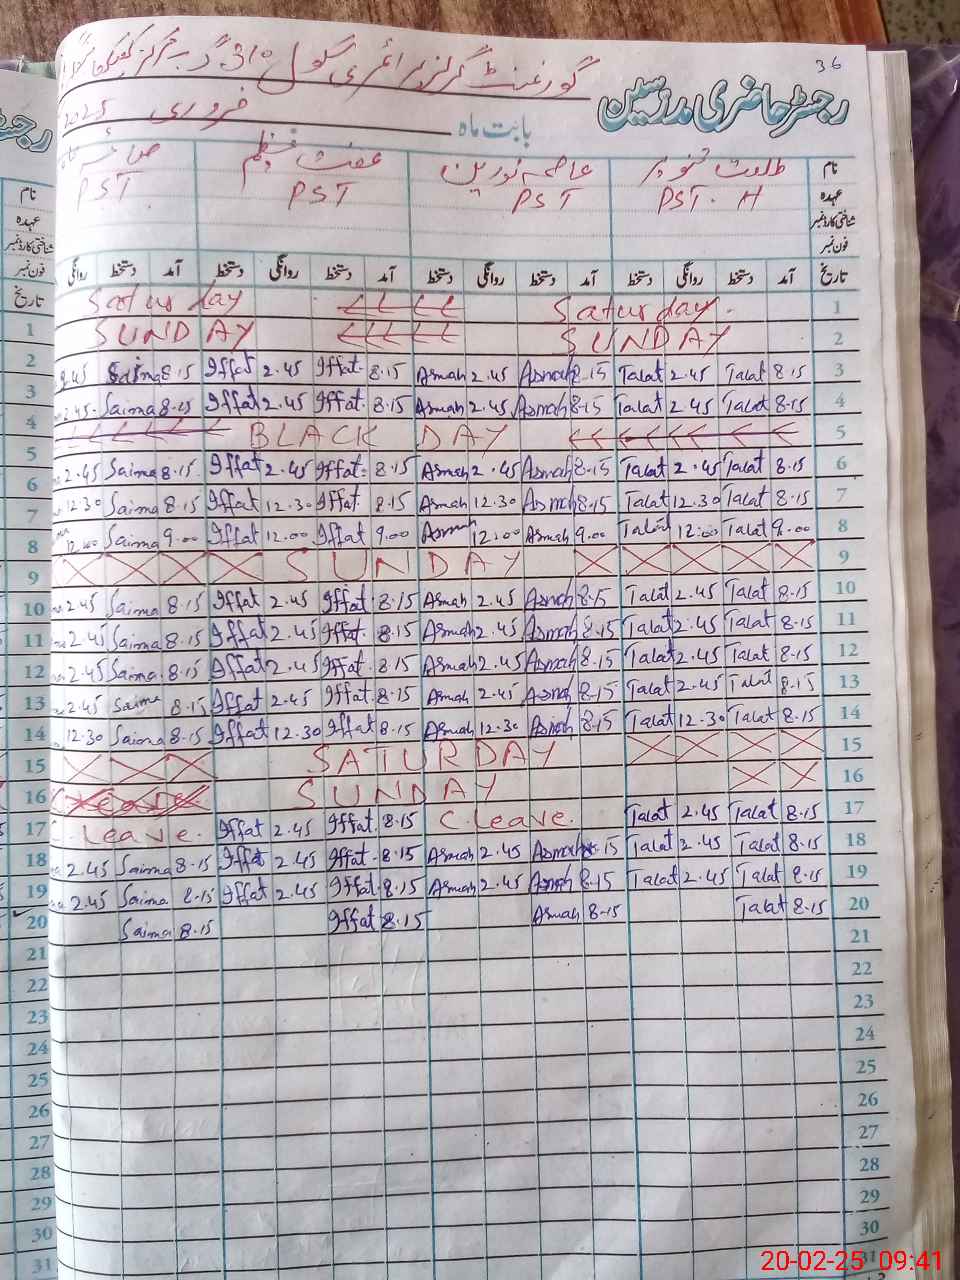 36
گورنمنٹ گرلز پرائمری سکول 310 گ ب
رجسٹر حاضری مدرسین
بابت ماہ فروری 2025
نام طلعت تنویر عاصمہ نورین عفت صائمہ
عہدہ PST. H PST PST PST
شناختی کارڈ نمبر
فون نمبر
تاریخ آمد دستخط روانگی دستخط آمد دستخط روانگی دستخط آمد دستخط روانگی دستخط آمد دستخط روانگی
Saturday Saturday. 1
SUNDAY SUNDAY 2
2.45 Saima 8.15 Iffat 2.45 Iffat. 8.15 Asmah 2.45 Asmah 8.15 Talat 2.45 Talat 8.15 3
2.45 Saima 8.15 Iffat 2.45 Iffat. 8.15 Asmah 2.45 Asmah 8.15 Talat 2.45 Talat 8.15 4
BLACK DAY 5
2.45 Saima 8.15 Iffat 2.45 Iffat. 8.15 Asmah 2.45 Asmah 8.15 Talat 2.45 Talat 8.15 6
12.30 Saima 8.15 Iffat 12.30 Iffat. 8.15 Asmah 12.30 Asmah 8.15 Talat 12.30 Talat 8.15 7
12.00 Saima 9.00 Iffat 12.00 Iffat 9.00 Asmah 12:00 Asmah 9.00 Talat 12:00 Talat 9.00 8
SUNDAY 9
2.45 Saima 8.15 Iffat 2.45 Iffat. 8.15 Asmah 2.45 Asmah 8.15 Talat 2.45 Talat 8.15 10
2.45 Saima 8.15 Iffat 2.45 Iffat. 8.15 Asmah 2.45 Asmah 8.15 Talat 2.45 Talat 8.15 11
2.45 Saima 8.15 Iffat 2.45 Iffat. 8.15 Asmah 2.45 Asmah 8.15 Talat 2.45 Talat 8.15 12
2.45 Saima 8.15 Iffat 2.45 Iffat. 8.15 Asmah 2.45 Asmah 8.15 Talat 2.45 Talat 8.15 13
12.30 Saima 8.15 Iffat 12.30 Iffat 8.15 Asmah 12.30 Asmah 8.15 Talat 12.30 Talat 8.15 14
SATURDAY 15
SUNDAY 16
C. Leave. Iffat 2.45 Iffat. 8.15 C. Leave. Talat 2.45 Talat 8.15 17
2.45 Saima 8.15 Iffat 2.45 Iffat. 8.15 Asmah 2.45 Asmah 8.15 Talat 2.45 Talat 8.15 18
2.45 Saima 8.15 Iffat 2.45 Iffat. 8.15 Asmah 2.45 Asmah 8.15 Talat 2.45 Talat 8.15 19
Saima 8.15 Iffat 8.15 Asmah 8.15 Talat 8.15 20
21
22
23
24
25
26
27
28
29
30
31
رجسٹر
نام
عہدہ
شناختی کارڈ نمبر
فون نمبر
تاریخ
1
2
3
4
5
6
7
8
9
10
11
12
13
14
15
16
17
18
19
20
21
22
23
24
25
26
27
28
29
30
31
20-02-25 09:41